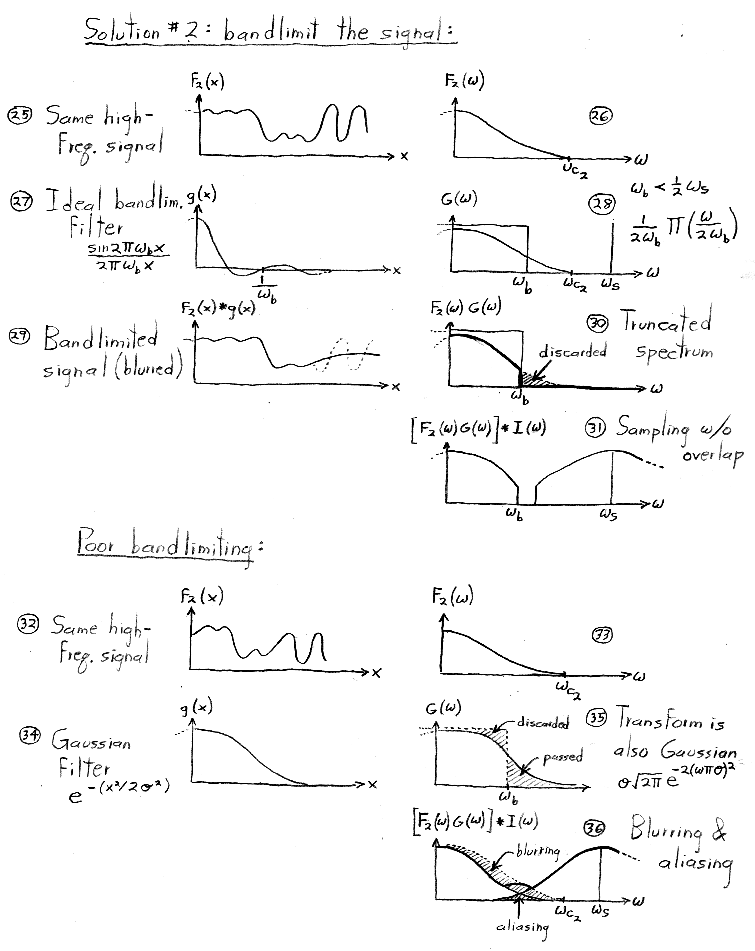 Solution #2: bandlimit the signal:
F₂(x)
F₂(ω)
25 Same high-
freq. signal
x
26
ω_c₂
ω
27 Ideal bandlim.
filter
sin2πω_b x
2πω_b x
g(x)
1
ω_b
x
G(ω)
28
ω_b < ½ω_s
1/2ω_b Π(ω/2ω_b)
ω_b
ω_c₂
ω_s
ω
29 Bandlimited
signal (blurred)
F₂(x)*g(x)
x
F₂(ω)G(ω)
30 Truncated
spectrum
discarded
ω_b
ω
[F₂(ω)G(ω)]*I(ω)
31 Sampling w/o
overlap
ω_b
ω_s
ω
Poor bandlimiting:
32 Same high-
freq. signal
F₂(x)
x
F₂(ω)
33
ω_c₂
ω
34 Gaussian
filter
e^-(x²/2σ²)
g(x)
x
G(ω)
discarded
passed
ω_b
ω
35 Transform is
also Gaussian
σ√2π e^-2(ωπσ)²
[F₂(ω)G(ω)]*I(ω)
36 Blurring &
aliasing
blurring
ω_c₂
ω_s
ω
aliasing